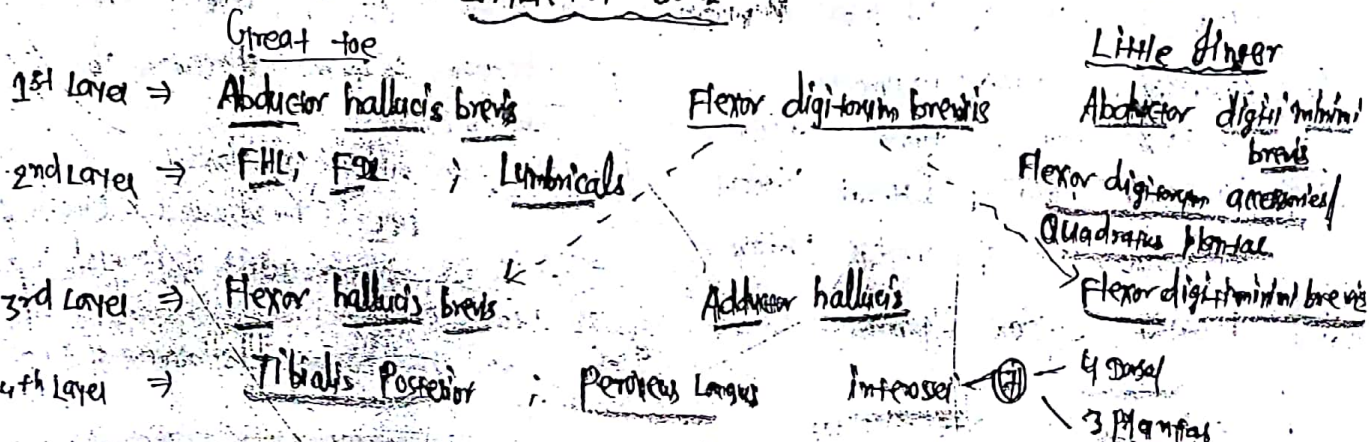 Great toe Little finger
1st Layer ⇒ Abductor hallucis brevis Flexor digitorum brevis Abductor digiti minimi brevis
2nd Layer ⇒ FHL; FDL ; Lumbricals Flexor digitorum accessories/
Quadratus plantae
3rd Layer ⇒ Flexor hallucis brevis Adductor hallucis Flexor digiti minimi brevis
4th Layer ⇒ Tibialis Posterior ; Peroneus Longus Interossei 7 4 Dorsal
3 Plantar